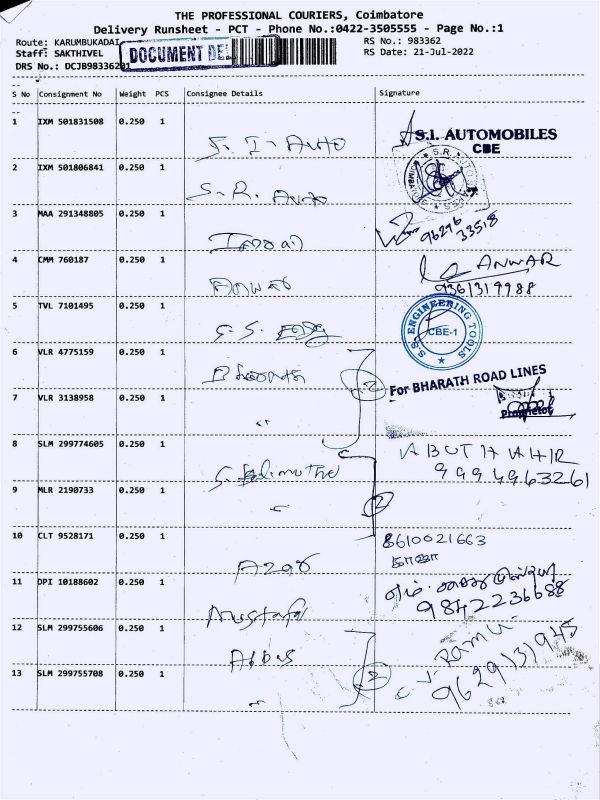 THE PROFESSIONAL COURIERS, Coimbatore
Delivery Runsheet - PCT - Phone No.:0422-3505555 - Page No.:1
Route: KARUMBUKADAI
RS No.: 983362
Staff: SAKTHIVEL
DOCUMENT DEL
RS Date: 21-Jul-2022
DRS No.: DCJB98336201
S No Consignment No Weight PCS Consignee Details Signature
1 IXM 501831508 0.250 1 S. I. Auto S.I. AUTOMOBILES
CBE
2 IXM 501806841 0.250 1 S. R. Auto
3 MAA 291348805 0.250 1 96296
33518
4 CMM 760187 0.250 1 ANWAR
9361319988
5 TVL 7101495 0.250 1 S. S. Engg S.S ENGINEERING TOOLS CBE-1
6 VLR 4775159 0.250 1 For BHARATH ROAD LINES
2
7 VLR 3138958 0.250 1 " Proprietor
8 SLM 299774605 0.250 1 ABUTHAHIR
9994963261
9 MLR 2190733 0.250 1 " 2
10 CLT 9528171 0.250 1 Azar 8610021663
11 DPI 10188602 0.250 1 Mustafa 9842236688
12 SLM 299755606 0.250 1 Abbas RAMU
2 9629131945
13 SLM 299755708 0.250 1 "